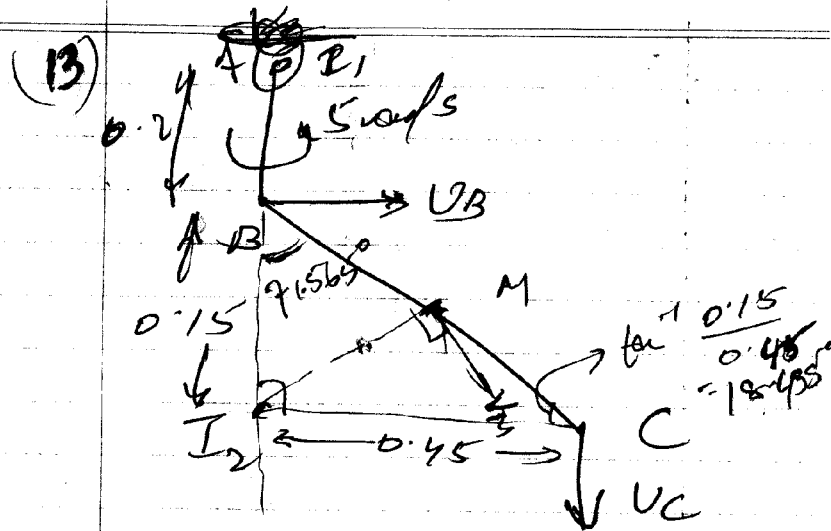 (13)
A I1
0.2
5 rad/s
UB
B
71.565°
M
0.15
tan⁻¹ 0.15
0.45
=18.435°
I2
0.45
C
UC